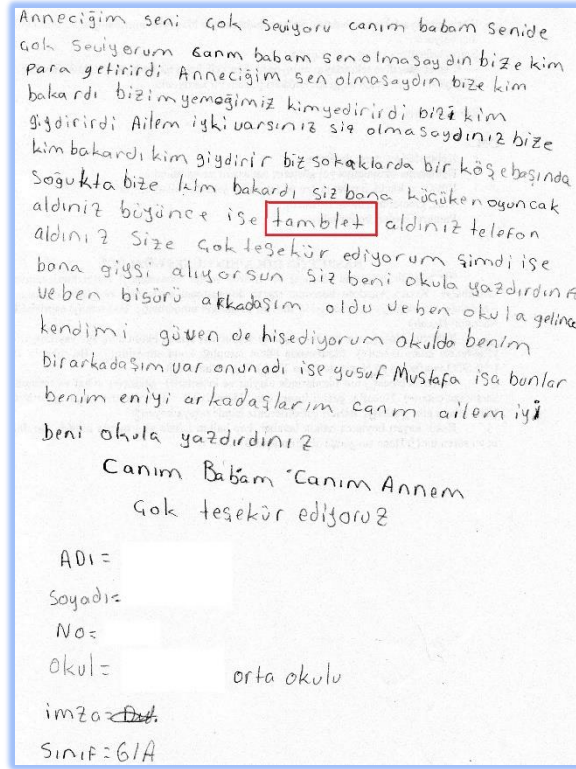 Anneciğim seni çok seviyoru canım babam senide
çok seviyorum canım babam sen olmasaydın bize kim
para getirirdi Anneciğim sen olmasaydın bize kim
bakardı bizim yemeğimiz kim yedirirdi bizi kim
giydirirdi Ailem iyki varsınız siz olmasaydınız bize
kim bakardı kim giydirir biz sokaklarda bir köşebaşında
Soğukta bize kim bakardı siz bana küçüken oyuncak
aldınız büyünce ise tamblet aldınız telefon
aldınız Size çok teşekür ediyorum şimdi ise
bana giysi alıyorsun siz beni okula yazdırdın
ve ben bisürü arkadaşım oldu ve ben okula gelince
kendimi güven de hisediyorum okulda benim
bir arkadaşım var onun adı ise yusuf Mustafa isa bunlar
benim eniyi arkadaşlarım canım ailem iyi
beni okula yazdırdınız
Canım Babam Canım Annem
Çok teşekür ediyoruz
ADI =
Soyadı=
No=
Okul = orta okulu
imza=
Sınıf = 6/A